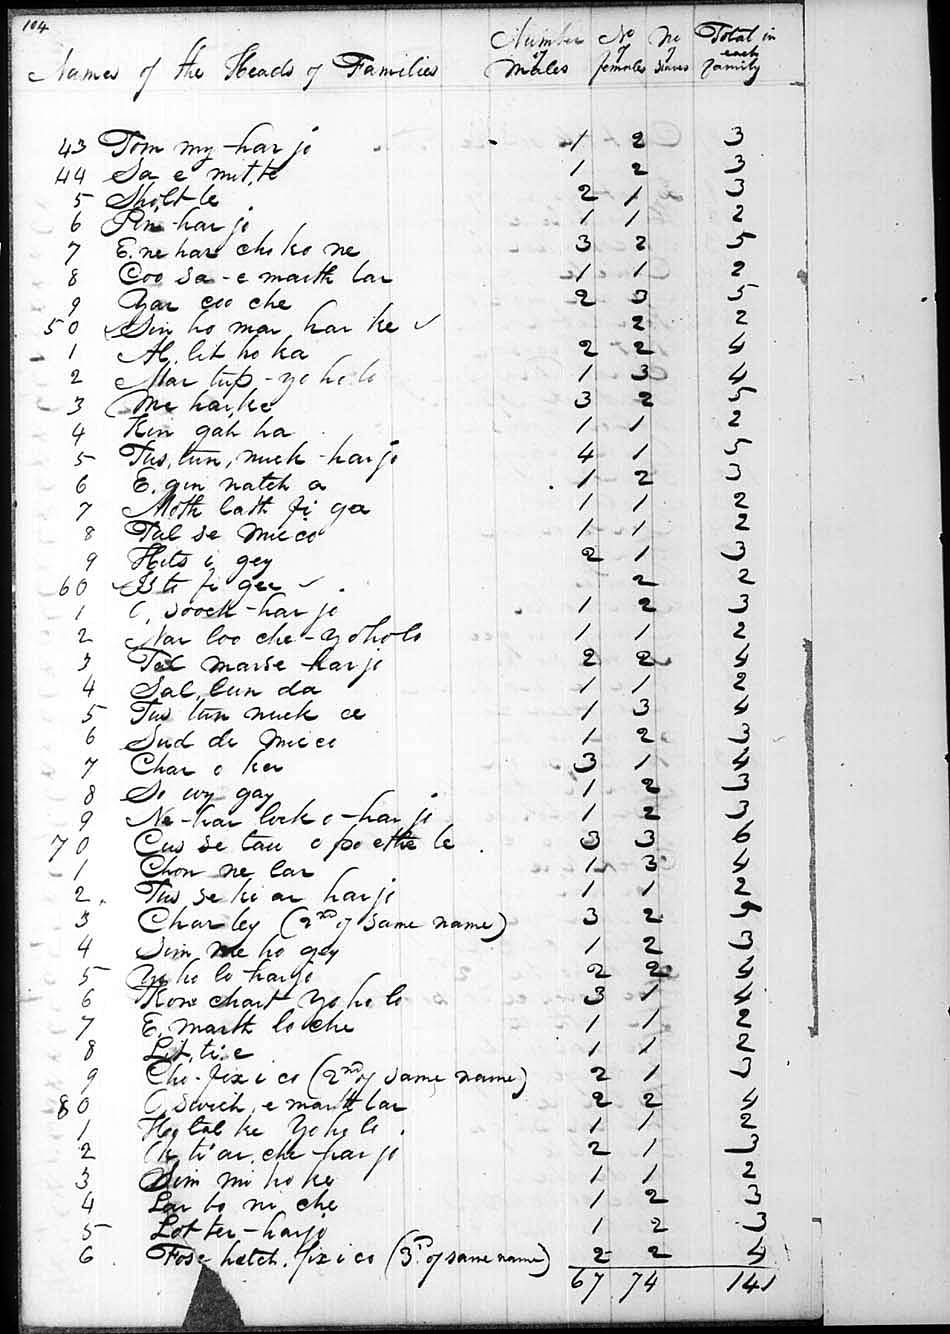 104
Names of the Heads of Families Number of Males No of females No of Slaves Total in each family
43 Tom my-har jo 1 2 3
44 Sa e mit,te 1 2 3
5 Sholt-le 2 1 3
6 Pin-har jo 1 1 2
7 E.ne har cho ko ne 3 2 5
8 Coo sa-e marth lar 1 1 2
9 Yar coo che 2 3 5
50 Sin ho mar har ke ✓ 2 2
1 Al, lit ho ka 2 2 4
2 Mar tup,-yo ho lo 1 3 4
3 Me har,ke 3 2 5
4 Kin gah ha 1 1 2
5 Tus,tun,nuck-harjo 4 1 5
6 E,gin natch a 1 2 3
7 Moth lath fi ga 1 1 2
8 Tal se micco 1 1 2
9 Hits i gey 2 1 3
60 Iste fi gee ✓ 2 2
1 O, soock-har jo 1 2 3
2 Nar loo che-yoholo 1 1 2
3 Tal marse-harjo 2 2 4
4 Sal,lun da 1 1 2
5 Tus tun nuck ce 1 3 4
6 Sud de Micco 1 2 3
7 Char o kee 3 1 4
8 So wy gay 1 2 3
9 Ne-har lock o-har jo 1 2 3
70 Cus se tau o po ethe le 3 3 6
1 Chon ne lar 1 3 4
2 Tus se ki ar harjo 1 1 2
3 Charley (2nd of same name) 3 2 5
4 Sim me ho gey 1 2 3
5 Yo ho lo-harjo 2 2 4
6 Kone chart-Yo ho lo 3 1 4
7 E,marth lo che 1 1 2
8 Lit,ti:e 1 1 2
9 Cho-fixico (2nd of same name) 2 1 3
80 O,swich,e marth lar 2 2 4
1 Ho tal ke Yo ho lo 1 1 2
2 Ok ti ar,che-harjo 2 1 3
3 Sim mi ho ke 1 1 2
4 Lar bo ni che 1 2 3
5 Lot ter-harjo 1 2 3
6 Fose hatch,fixico (3rd of same name) 2 2 4
67 74 141